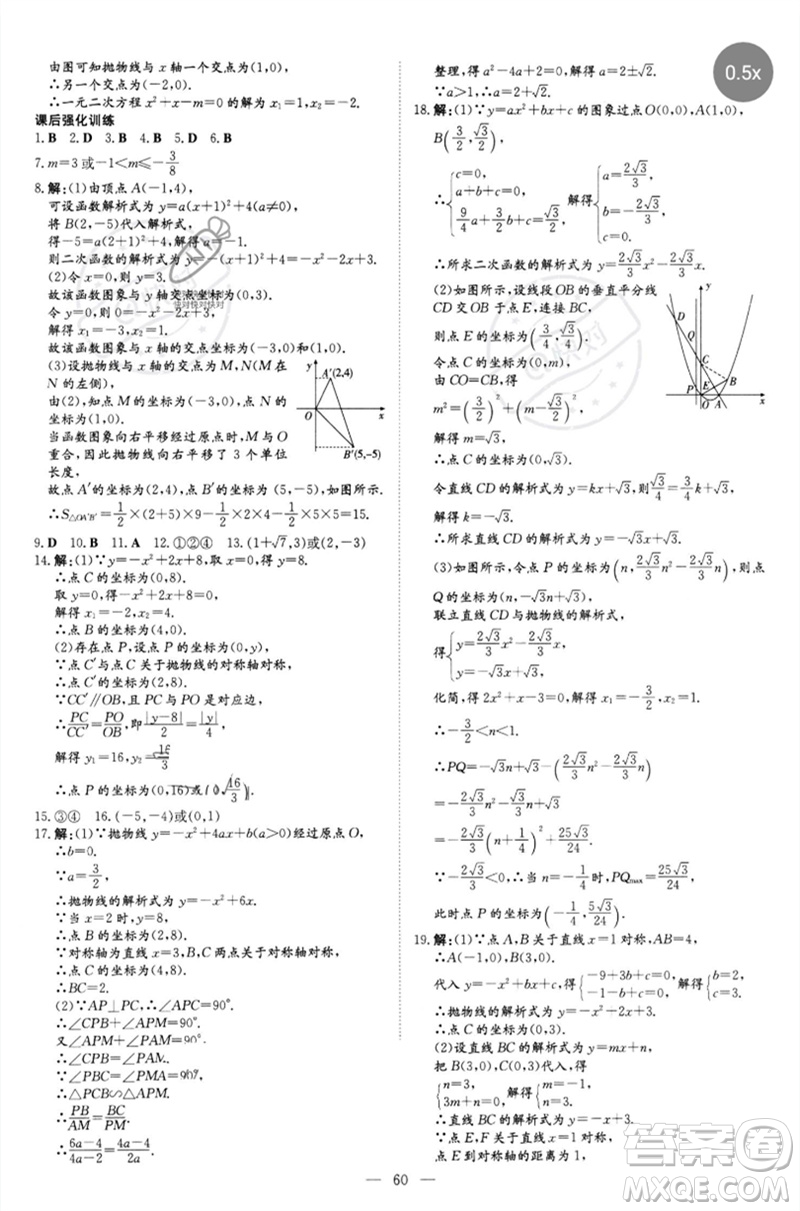 由图可知抛物线与 x 轴一个交点为(1,0),
∴另一个交点为(-2,0).
∴一元二次方程 x²+x+c=0 的解为 x₁=1,x₂=-2.
课后强化训练
1. B  2. D  3. B  4. B  5. D  6. B
7. m=3 或 -1<m≤-3/8
8. 解:(1)由顶点 A(-1,4),
可设函数解析式为 y=a(x+1)²+4(a≠0),
将 B(2,-5)代入解析式,
得-5=a(2+1)²+4.解得 a=-1.
则二次函数的解析式为 y=-(x+1)²+4.
(2)令 x=0,则 y=3.
故该函数图象与 y 轴交点坐标为(0,3).
令 y=0,则 0=-(x+1)²+4,
解得 x₁=-3,x₂=1.
故该函数图象与 x 轴的交点坐标为(-3,0)和(1,0).
(3)设抛物线与 x 轴的交点为 M,N(M 在
N 的左侧),
由(2),知点 M 的坐标为(-3,0),点 N 的
坐标为(1,0).
当函数图象向右平移经过原点时,M 与 O
重合,因此图象向右平移了 3 个单位
长度,
故点 A′的坐标为(2,4),点 B′的坐标为(5,-5),如图所示.
y A′(2,4) O x B′(5,-5)
∴S△OA′B′=1/2×(2+5)×9-1/2×2×4-1/2×5×5=15.
9. D  10. B  11. A  12. ①②④  13. (1+√7,3)或(2,-3)
14. 解:(1)∵y=-x²+2x+8,取 x=0,得 y=8.
∴点 C 的坐标为(0,8).
取 y=0,得 0=-x²+2x+8,
解得 x₁=-2,x₂=4.
∴点 B 的坐标为(4,0).
(2)存在点 P,设点 P 的坐标为(0,y),
∵点 C′与点 C 关于抛物线的对称轴对称,
∴点 C′的坐标为(2,8).
∵CC′∥OB,且 PC 与 PO 是对应边,
∴PC/CC′=PO/OB,即|y-8|/2=|y|/4,
解得 y₁=16,y₂=16/3
∴点 P 的坐标为(0,16)或(0,16/3).
15. ③④  16. (-5,-4)或(0,1)
17. 解:(1)∵抛物线 y=-x²+4ax+b(a>0)经过原点 O,
∴b=0.
∵a=3/2,
∴抛物线的解析式为 y=-x²+6x.
∵当 x=2 时,y=8,
∴点 B 的坐标为(2,8).
∵对称轴为直线 x=3,B,C 两点关于对称轴对称,
∴点 C 的坐标为(4,8).
∴BC=2.
(2)∵AP⊥PC,∴∠APC=90°.
∴∠CPB+∠APM=90°.
又∠APM+∠PAM=90°,
∴∠CPB=∠PAM.
∵∠PBC=∠PMA=90°,
∴△PBC∽△APM.
∴PB/AM=BC/PM.
∴(6a-4)/(4a-4)=(4a-4)/2.
整理,得 a²-4a+2=0,解得 a=2±√2.
∵a>1,∴a=2+√2.
18. 解:(1)∵y=ax²+bx+c 的图象过点 O(0,0),A(1,0),
B(3/2,√3/2),
∴{c=0, a+b+c=0, 9/4a+3/2b+c=√3/2, 解得{a=2√3/3, b=-2√3/3, c=0.
∴所求二次函数的解析式为 y=2√3/3x²-2√3/3x.
(2)如图所示,设线段 OB 的垂直平分线
CD 交 OB 于点 E,连接 BC,
则点 E 的坐标为(3/4,√3/4).
令点 C 的坐标为(0,m),
由 CO=CB,得
m²=(3/2)²+(m-√3/2)²,
y D C P E B Q O A x
解得 m=√3.
∴点 C 的坐标为(0,√3).
令直线 CD 的解析式为 y=kx+√3,则√3/4=3/4k+√3,
解得 k=-√3.
∴所求直线 CD 的解析式为 y=-√3x+√3.
(3)如图所示,令点 P 的坐标为(n,2√3/3n²-2√3/3n),则点
Q 的坐标为(n,-√3n+√3).
联立直线 CD 与抛物线的解析式,
得{y=2√3/3x²-2√3/3x, y=-√3x+√3.
化简,得 2x²+x-3=0.解得 x₁=-3/2,x₂=1.
∴-3/2<n<1.
∴PQ=-√3n+√3-(2√3/3n²-2√3/3n)=-2√3/3n²-√3/3n+√3
=-2√3/3(n+1/4)²+25√3/24.
∵-2√3/3<0,∴当 n=-1/4时,PQmax=25√3/24,
此时点 P 的坐标为(-1/4,5√3/24).
19. 解:(1)∵点 A,B 关于直线 x=1 对称,AB=4,
∴A(-1,0),B(3,0).
代入 y=-x²+bx+c 中,得{-9+3b+c=0, -1-b+c=0. 解得{b=2, c=3.
∴抛物线的解析式为 y=-x²+2x+3.
∴点 C 的坐标为(0,3).
(2)设直线 BC 的解析式为 y=mx+n,
把 B(3,0),C(0,3)代入,得
{n=3, 3m+n=0. 解得{m=-1, n=3.
∴直线 BC 的解析式为 y=-x+3.
∵点 E,F 关于直线 x=1 对称,
∴点 E 到对称轴的距离为 1
60
0.5x
快对快对快对
答案圈
MXQE.COM